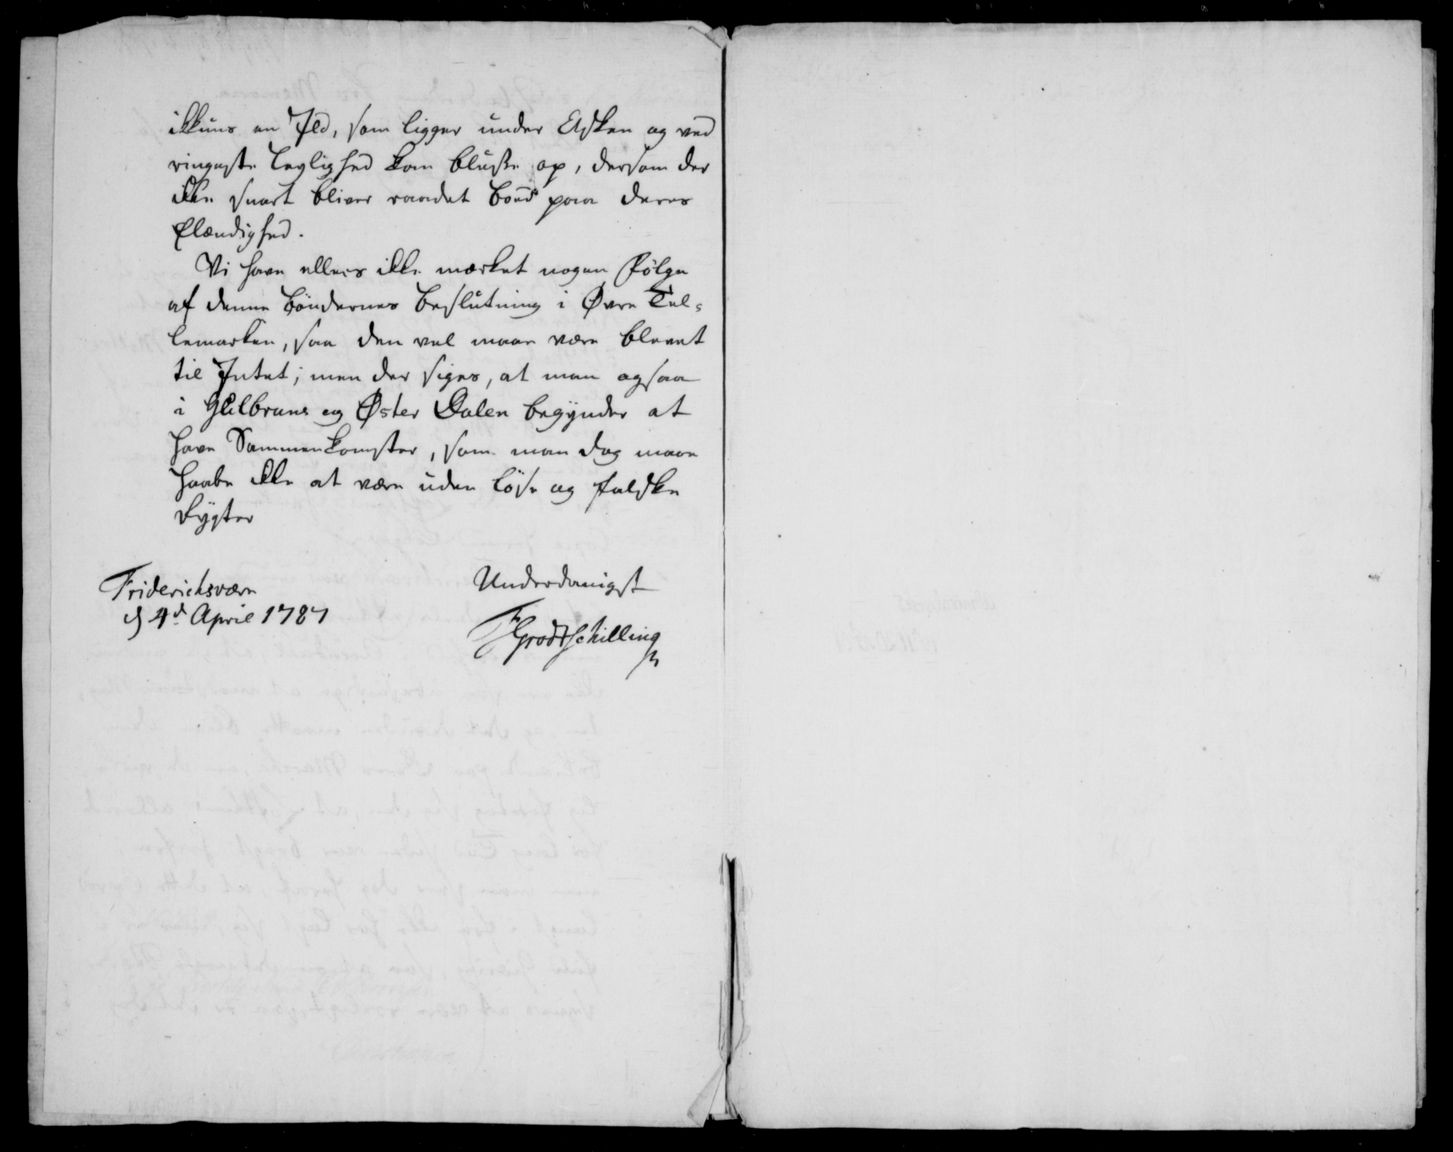 ikkuns en Ild, som ligger under Asken og ved
ringeste Leylighed kan bluse op, dersom der
ikke snart bliver raadet bood paa deres
Elændighed.
Vi have ellers ikke mærket nogen Følge
af denne Bøndernes beslutning i Øvre Tel-
lemarken, saa den vel maae være blevet
til Intet; men der siges, at man ogsaa
i Gulbrans og Øster Dalen begynder at
have Sammenkomster, som man dog maae
haabe ikke at være uden løse og falske
Rygter
Friderichsværn
d 4d. April 1787
Underdanigst
Grodtschilling